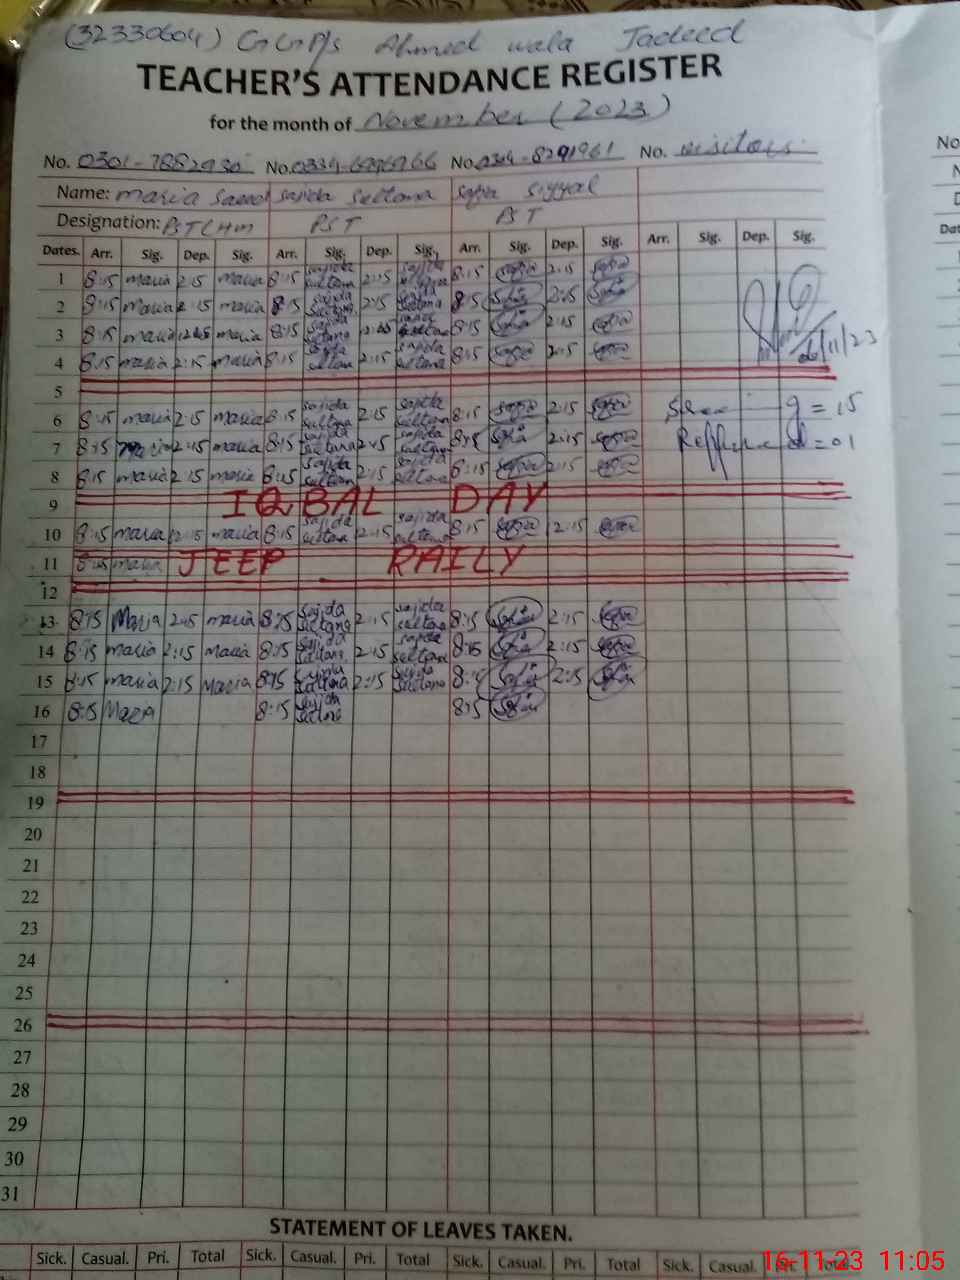 (32330604) GGP/s Ahmed wala Jadeed
TEACHER'S ATTENDANCE REGISTER
for the month of November (2023)
No. No. No. No. visitors.
Name: Maria Saeed Sajida Sultana Safia Siyyal
Designation: PST(Hm PST PST
Dates. Arr. Sig. Dep. Sig. Arr. Sig. Dep. Sig. Arr. Sig. Dep. Sig. Arr. Sig. Dep. Sig.
1 8:15 maria 2:15 maria 8:15 sajida sultana 2:15 sajida 8:15 safia 2:15 safia
2 8:15 maria 2:15 maria 8:15 sajida sultana 2:15 sajida sultana 8:15 safia 2:15 safia
3 8:15 maria maria 8:15 sajida sultana sajida sultana 8:15 safia 2:15 safia
4 8:15 maria 2:15 maria 8:15 sajida sultana 2:15 sajida sultana 8:15 safia 2:15 safia
5
6 8:15 maria 2:15 maria 8:15 sajida sultana 2:15 sajida sultana 8:15 safia 2:15 safia = 15
7 8:15 maria 2:15 maria 8:15 sajida sultana 2:15 sajida sultana 8:15 safia 2:15 safia = 01
8 8:15 maria 2:15 maria 8:15 sajida sultana 2:15 sajida sultana 8:15 safia 2:15 safia
9 IQBAL DAY
10 8:15 maria 2:15 maria 8:15 sajida sultana 2:15 sajida sultana 8:15 safia 2:15 safia
11 maria JEEP RAILY
12
13 8:15 Maria 2:15 maria 8:15 sajida sultana 2:15 sajida sultana 8:15 safia 2:15 safia
14 8:15 maria 2:15 maria 8:15 sajida sultana 2:15 sajida sultana 8:15 safia 2:15 safia
15 8:15 maria 2:15 Maria 8:15 sajida sultana 2:15 sajida sultana 8:15 safia 2:15 safia
16 8:15 Maria 8:15 sajida sultana 8:15 safia
17
18
19
20
21
22
23
24
25
26
27
28
29
30
31
STATEMENT OF LEAVES TAKEN.
Sick. Casual. Pri. Total Sick. Casual. Pri. Total Sick. Casual. Pri. Total Sick. Casual. Pri. Total
16-11-23 11:05
No
Dat